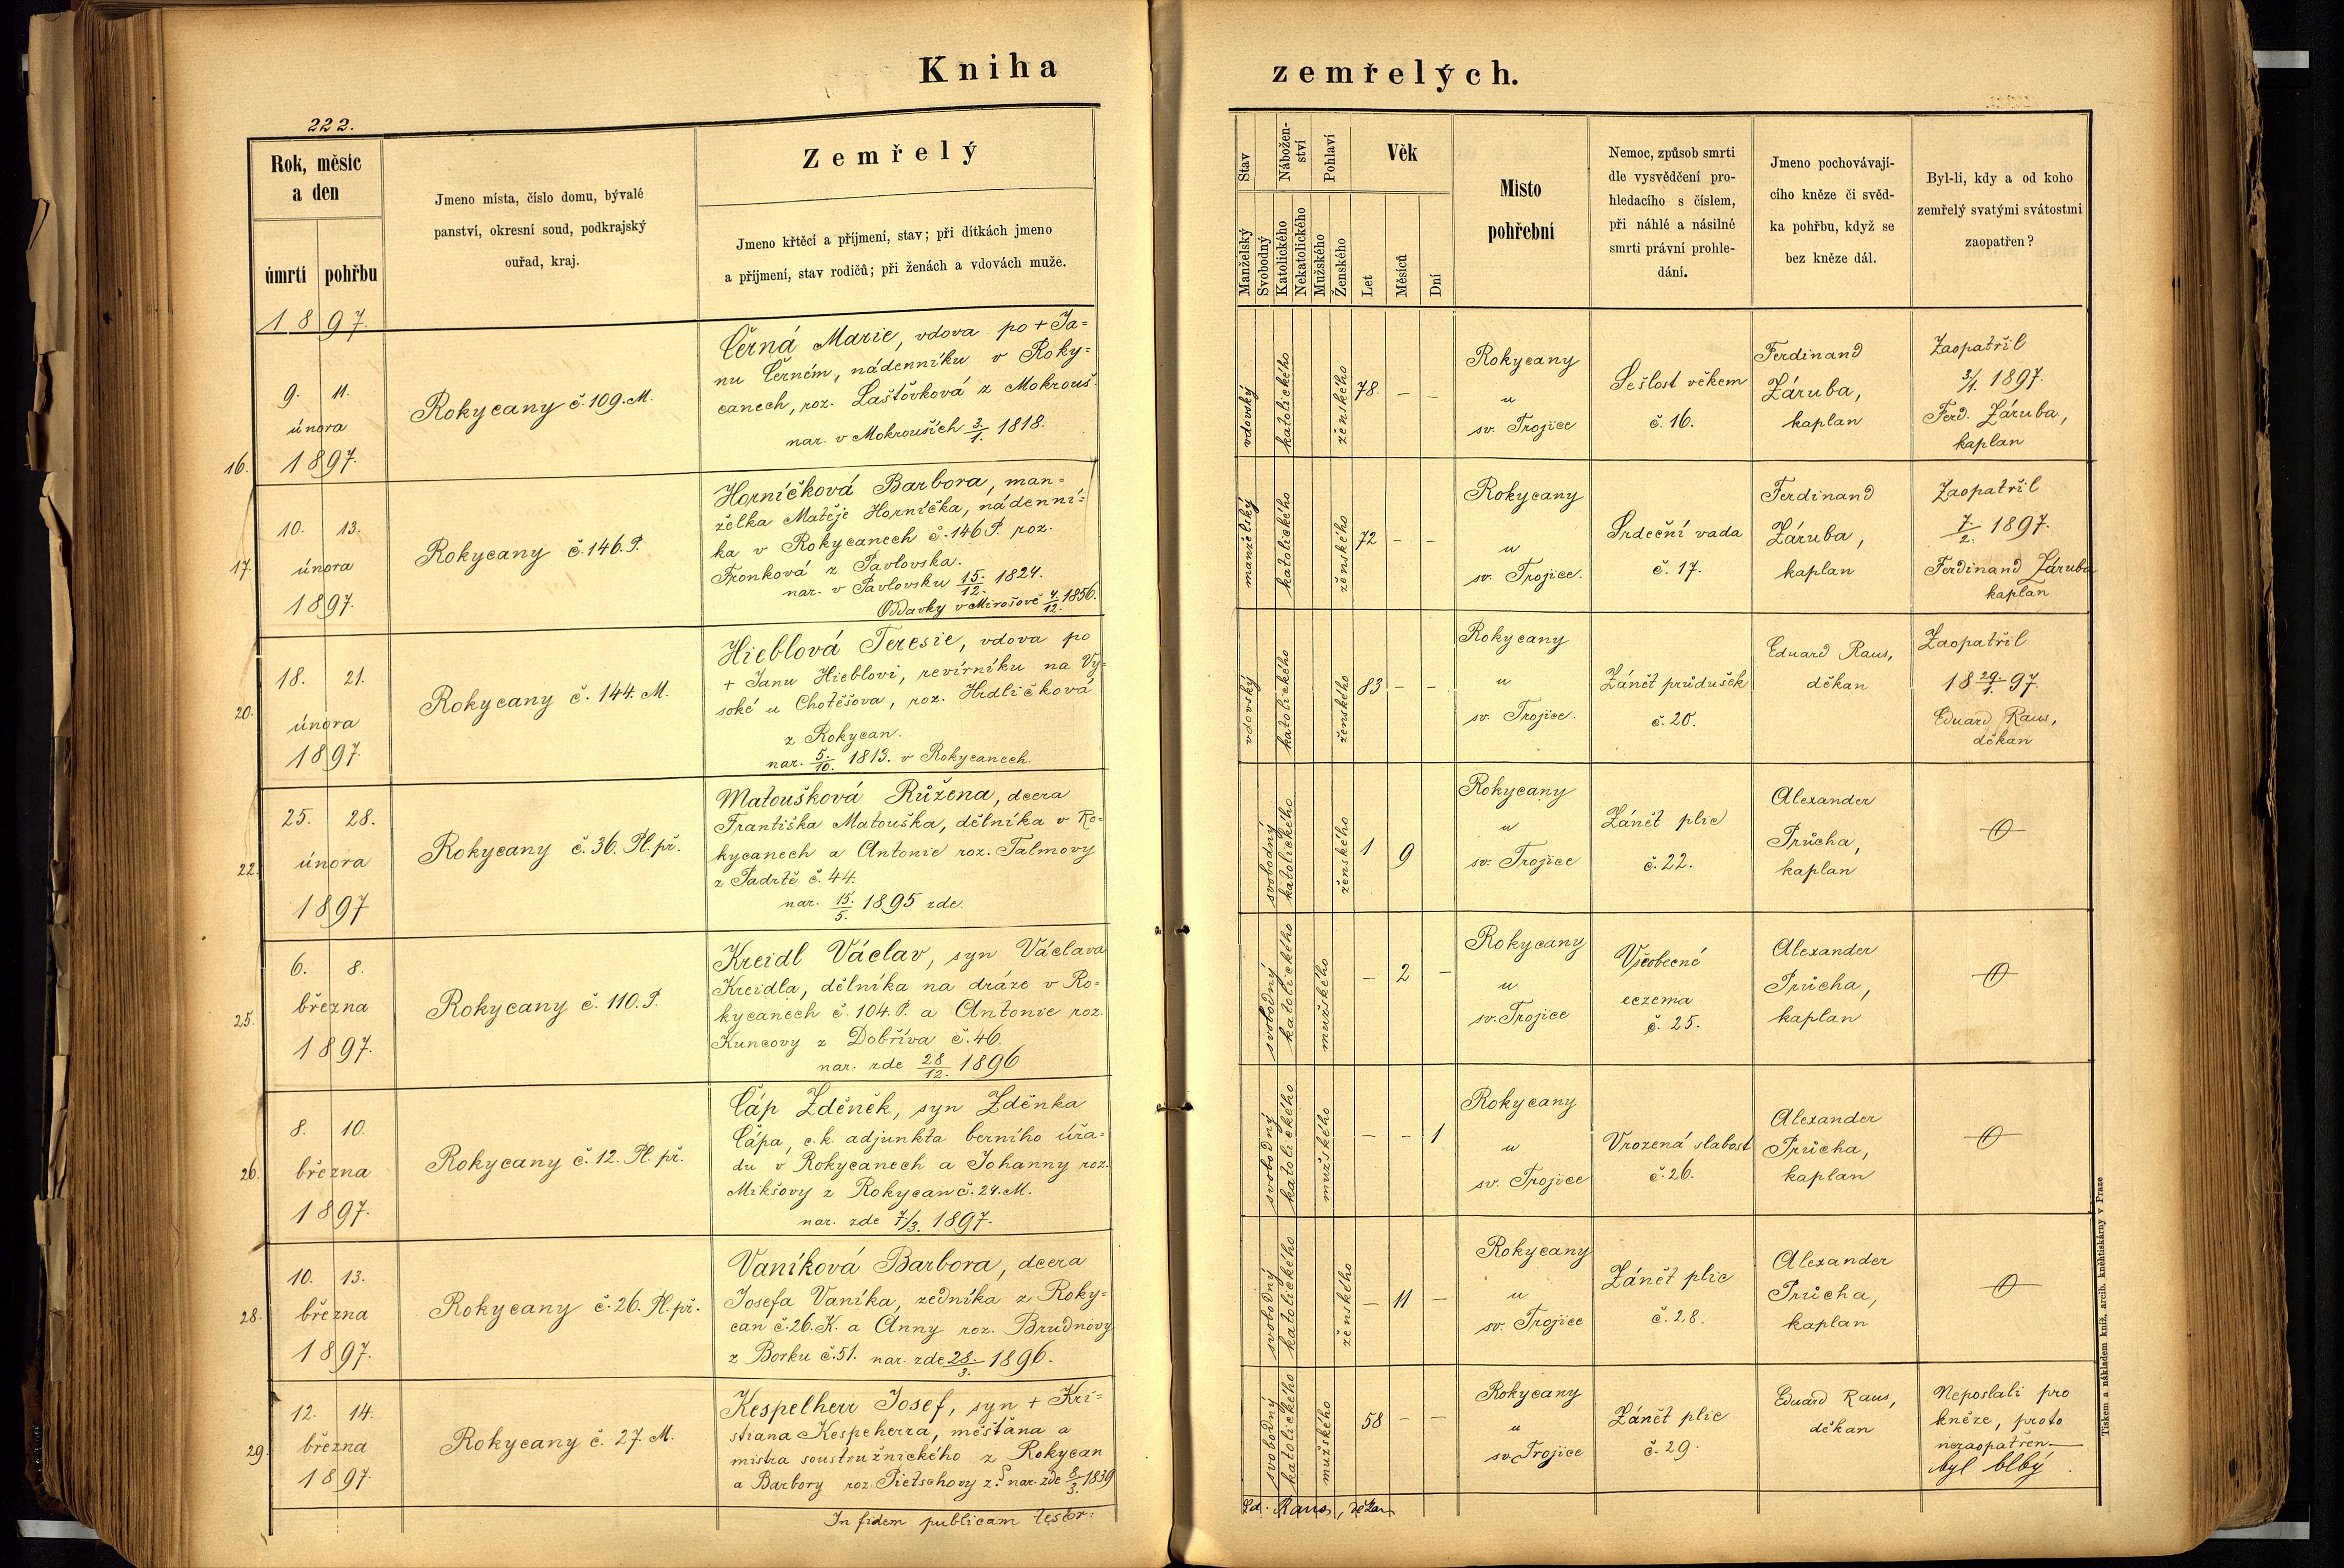 Kniha zemřelých.
222.
Rok, měsíc
a den
úmrtí pohřbu
Jmeno místa, číslo domu, bývalé
panství, okresní soud, podkrajský
ouřad, kraj.
Zemřelý
Jmeno křtěcí a příjmení, stav; při dítkách jmeno
a příjmení, stav rodičů; při ženách a vdovách muže.
Stav
Manželský
Svobodný
Nábožen-
ství
Katolického
Nekatolického
Pohlaví
Mužského
Ženského
Věk
Let
Měsíců
Dní
Místo
pohřební
Nemoc, způsob smrti
dle vysvědčení pro-
hledacího s číslem,
při náhlé a násilné
smrti právní prohle-
dání.
Jmeno pochovávají-
cího kněze či svěd-
ka pohřbu, když se
bez kněze dál.
Byl-li, kdy a od koho
zemřelý svatými svátostmi
zaopatřen?
1897.
16.
9. 11.
února
1897.
Rokycany č. 109. M.
Černá Marie, vdova po + Ja=
nu Černém, nádenníku v Roky=
canech, roz. Laštovková z Mokrouš.
nar. v Mokrouších 3./1. 1818.
vdovský
katolického
ženského
78. – –
Rokycany
u
sv. Trojice
Sešlost věkem
č. 16.
Ferdinand
Záruba,
kaplan
Zaopatřil
3/1 1897.
Ferd. Záruba,
kaplan
17.
10. 13.
února
1897.
Rokycany č. 146. P.
Horníčková Barbora, man=
želka Matěje Horníčka, nádenní=
ka v Rokycanech č. 146 P. roz.
Fronková z Pavlovska.
nar. v Pavlovsku 15./12. 1824.
Oddavky v Mirošově 4./12. 1856.
manželský
katolického
ženského
72 – –
Rokycany
u
sv. Trojice.
Srdeční vada
č. 17.
Ferdinand
Záruba,
kaplan
Zaopatřil
7./2. 1897.
Ferdinand Záruba
kaplan
20.
18. 21.
února
1897.
Rokycany č. 144. M.
Hieblová Teresie, vdova po
+ Janu Hieblovi, revírníku na Vy=
soké u Chotěšova, roz. Hrdličková
z Rokycan.
nar. 5./10. 1813. v Rokycanech.
vdovský
katolického
ženského
83 – –
Rokycany
u
sv. Trojice.
Zánět průdušek
č. 20.
Eduard Raus,
děkan
Zaopatřil
18 29/1. 97.
Eduard Raus,
děkan
22.
25. 28.
února
1897
Rokycany č. 36. Pl. př.
Matoušková Růžena, dcera
Františka Matouška, dělníka v Ro=
kycanech a Antonie roz. Talmovy
z Padrtě č. 44.
nar. 15./5. 1895 zde.
svobodný
katolického
ženského
1 9
Rokycany
u
sv. Trojice
Zánět plic
č. 22.
Alexander
Průcha,
kaplan
25.
6. 8.
března
1897.
Rokycany č. 110. P.
Kreidl Václav, syn Václava
Kreidla, dělníka na dráze v Ro=
kycanech č. 104. P. a Antonie roz.
Kuncovy z Dobříva č. 46.
nar. zde 28/12. 1896
svobodný
katolického
mužského
– 2 –
Rokycany
u
sv. Trojice
Všeobecné
eczema
č. 25.
Alexander
Průcha,
kaplan
26.
8. 10.
března
1897.
Rokycany č. 12. Pl. př.
Čáp Zdeněk, syn Zděnka
Čápa, c. k. adjunkta berního úřa=
du v Rokycanech a Johanny roz.
Mikšovy z Rokycan č. 24. M.
nar. zde 7/3. 1897.
svobodný
katolického
mužského
– – 1
Rokycany
u
sv. Trojice
Vrozená slabost
č. 26.
Alexander
Průcha,
kaplan
28.
10. 13.
března
1897.
Rokycany č. 26. Pl. př.
Vaníková Barbora, dcera
Josefa Vaníka, zedníka z Roky=
can č. 26. K. a Anny roz. Brudnovy
z Borku č. 51. nar. zde 28./3. 1896.
svobodný
katolického
ženského
– 11 –
Rokycany
u
sv. Trojice
Zánět plic
č. 28.
Alexander
Průcha,
kaplan
29.
12. 14.
března
1897.
Rokycany č. 27. M.
Kespelherr Josef, syn + Kri=
stiana Kespeherra, měšťana a
mistra soustružnického z Rokycan
a Barbory roz. Pietschovy z ? nar. zde 8/3. 1839
svobodný
katolického
mužského
58 – –
Rokycany
u
sv. Trojice
Zánět plic
č. 29.
Eduard Raus,
děkan
Neposlali pro
kněze, proto
nezaopatřen —
byl blbý.
In fidem publicam testor:
Ed. Raus, děkan
Tiskem a nákladem kníž. arcib. kněhtiskárny v Praze